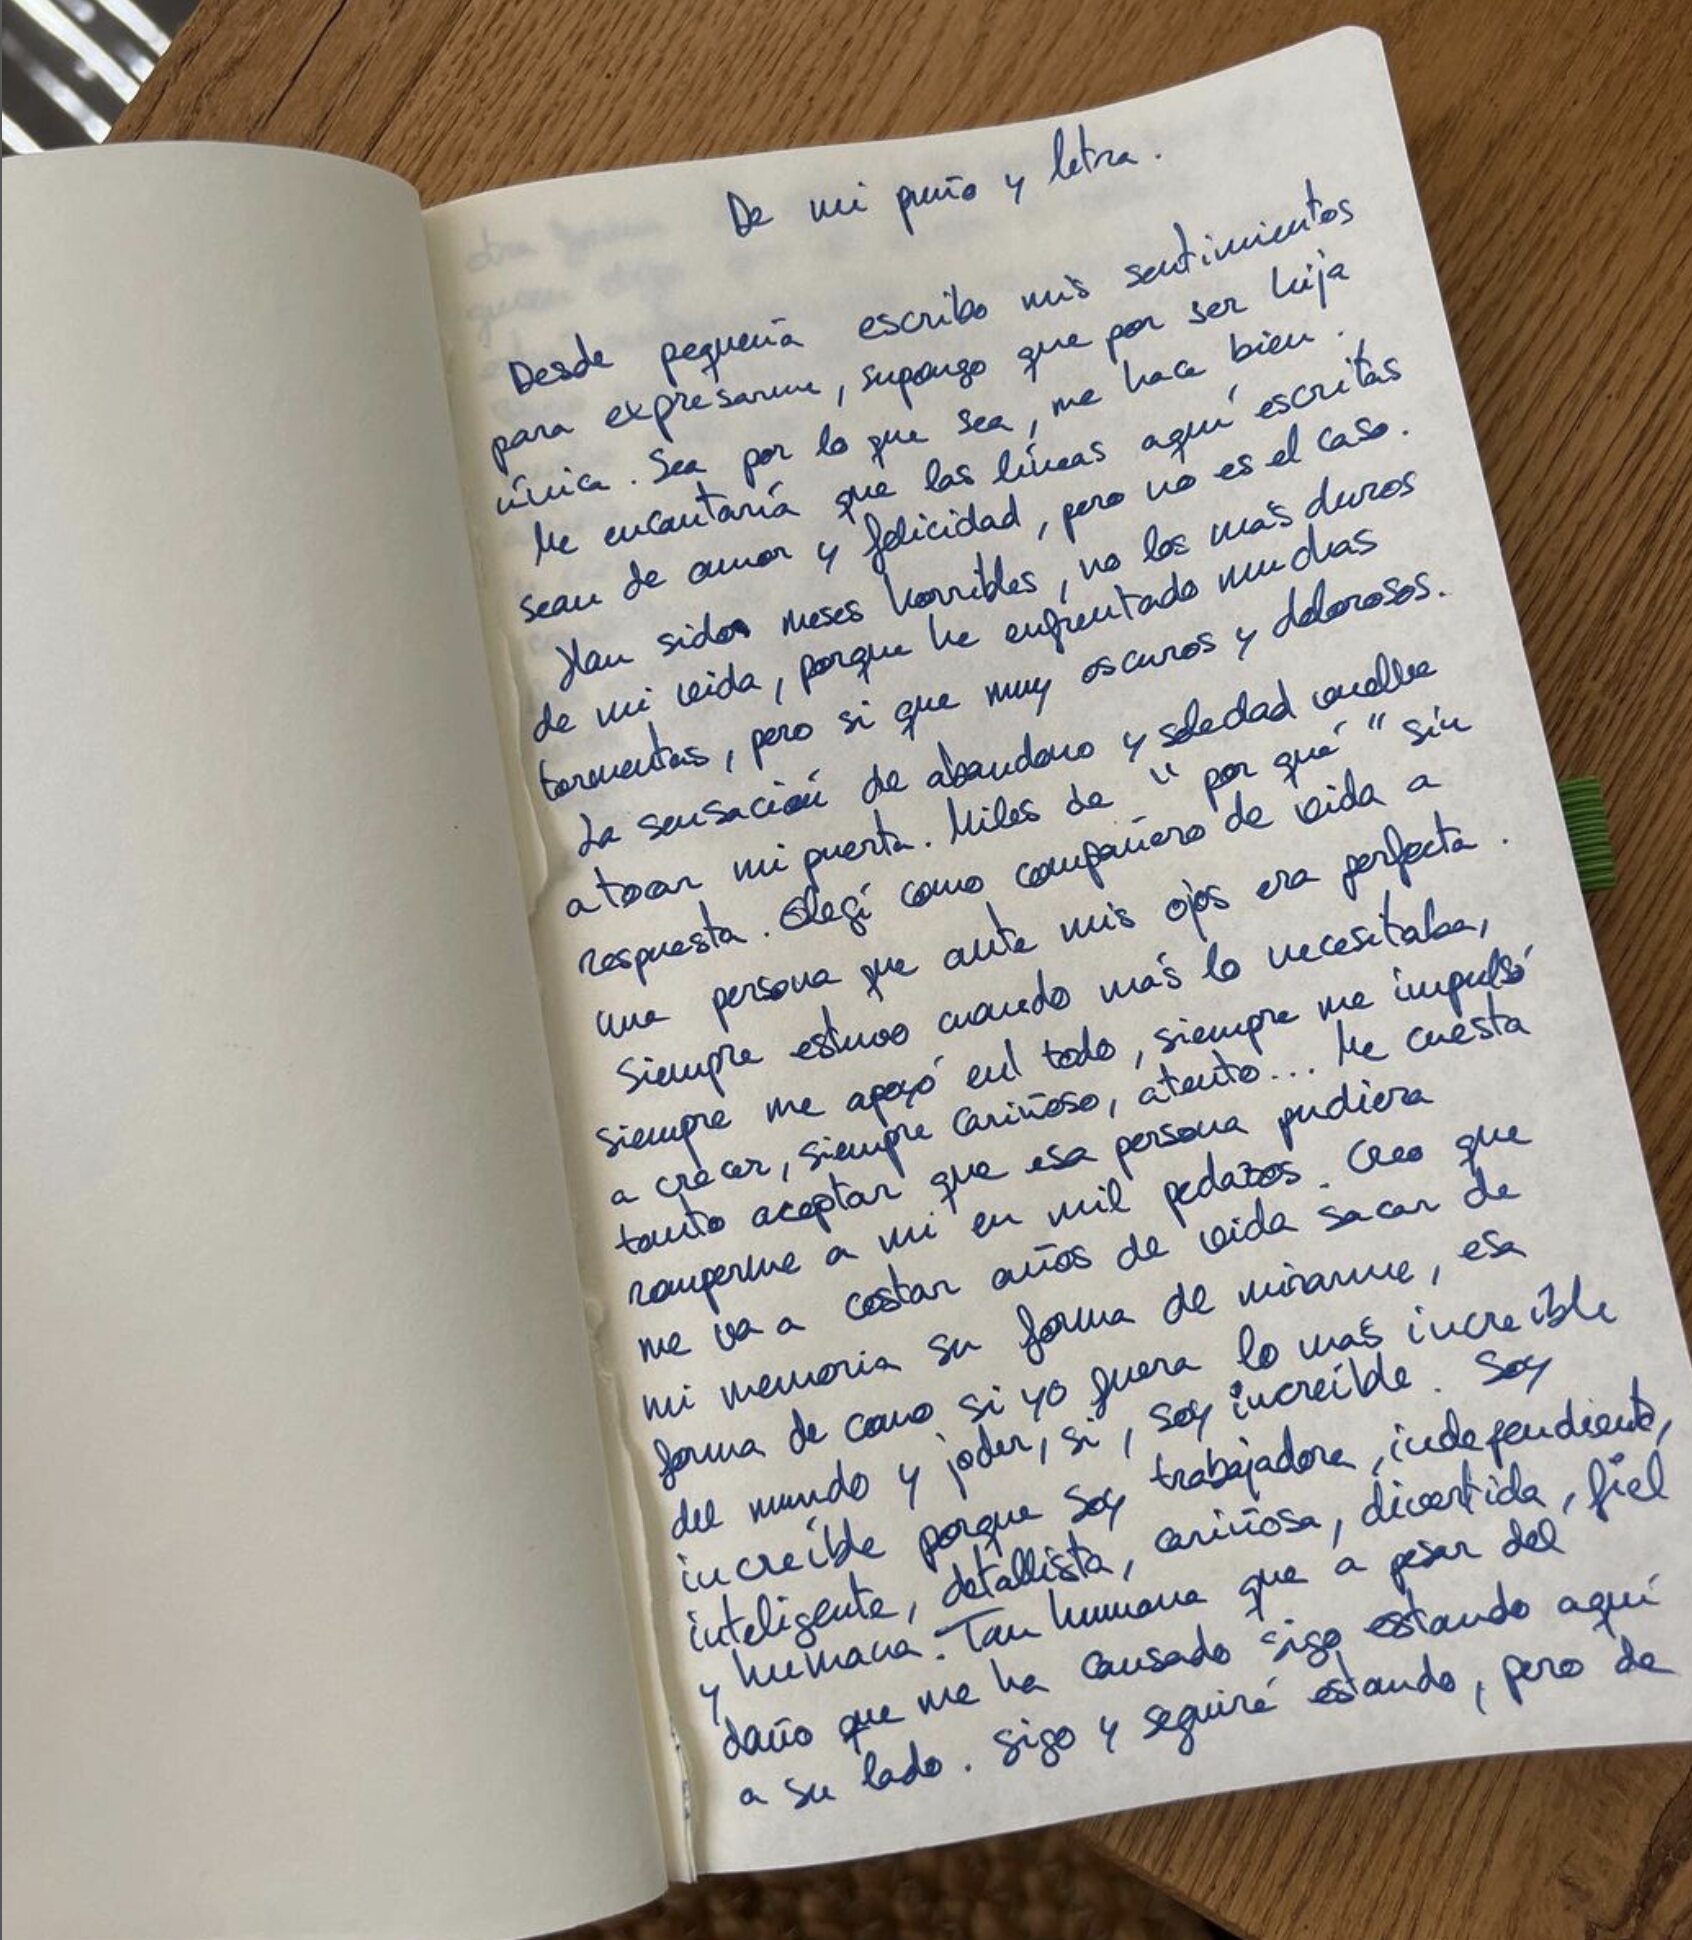 De mi puño y letra.
Desde pequeña escribo mis sentimientos
para expresarme, supongo que por ser hija
única. Sea por lo que sea, me hace bien.
Me encantaría que las líneas aquí escritas
sean de amor y felicidad, pero no es el caso.
Han sido meses horribles, no los más duros
de mi vida, porque he enfrentado muchas
tormentas, pero si que muy oscuros y dolorosos.
La sensación de abandono y soledad vuelve
a tocar mi puerta. Miles de "por qué" sin
respuesta. Elegí como compañero de vida a
una persona que ante mis ojos era perfecta.
Siempre estuvo cuando más lo necesitaba,
siempre me apoyó en todo, siempre me impulsó
a crecer, siempre cariñoso, atento... Me cuesta
tanto aceptar que esa persona pudiera
romperme a mi en mil pedazos. Creo que
me va a costar años de vida sacar de
mi memoria su forma de mirarme, esa
forma de como si yo fuera lo mas increíble
del mundo y joder, si, soy increíble. Soy
increíble porque soy trabajadora, independiente,
inteligente, detallista, cariñosa, divertida, fiel
y humana. Tan humana que a pesar del
daño que me ha causado sigo estando aquí
a su lado. Sigo y seguiré estando, pero de